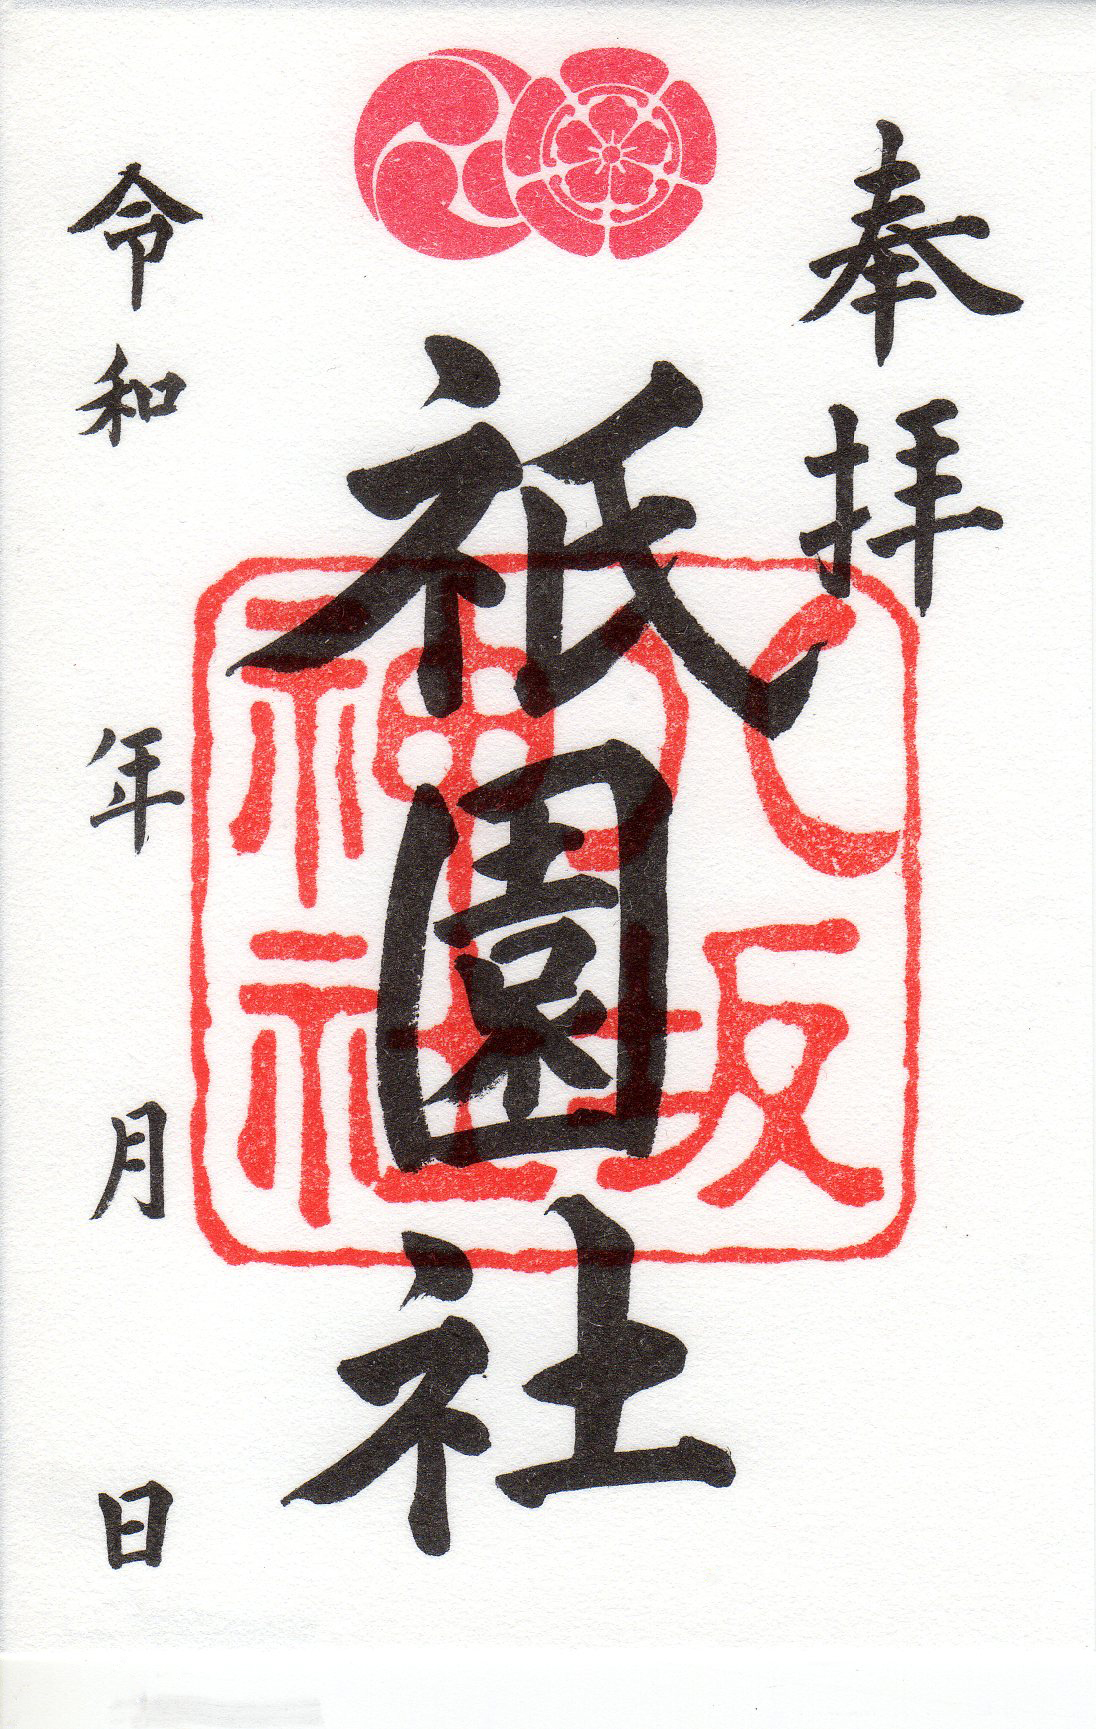 奉拝
八坂
神社
祇園社
令和 年 月 日